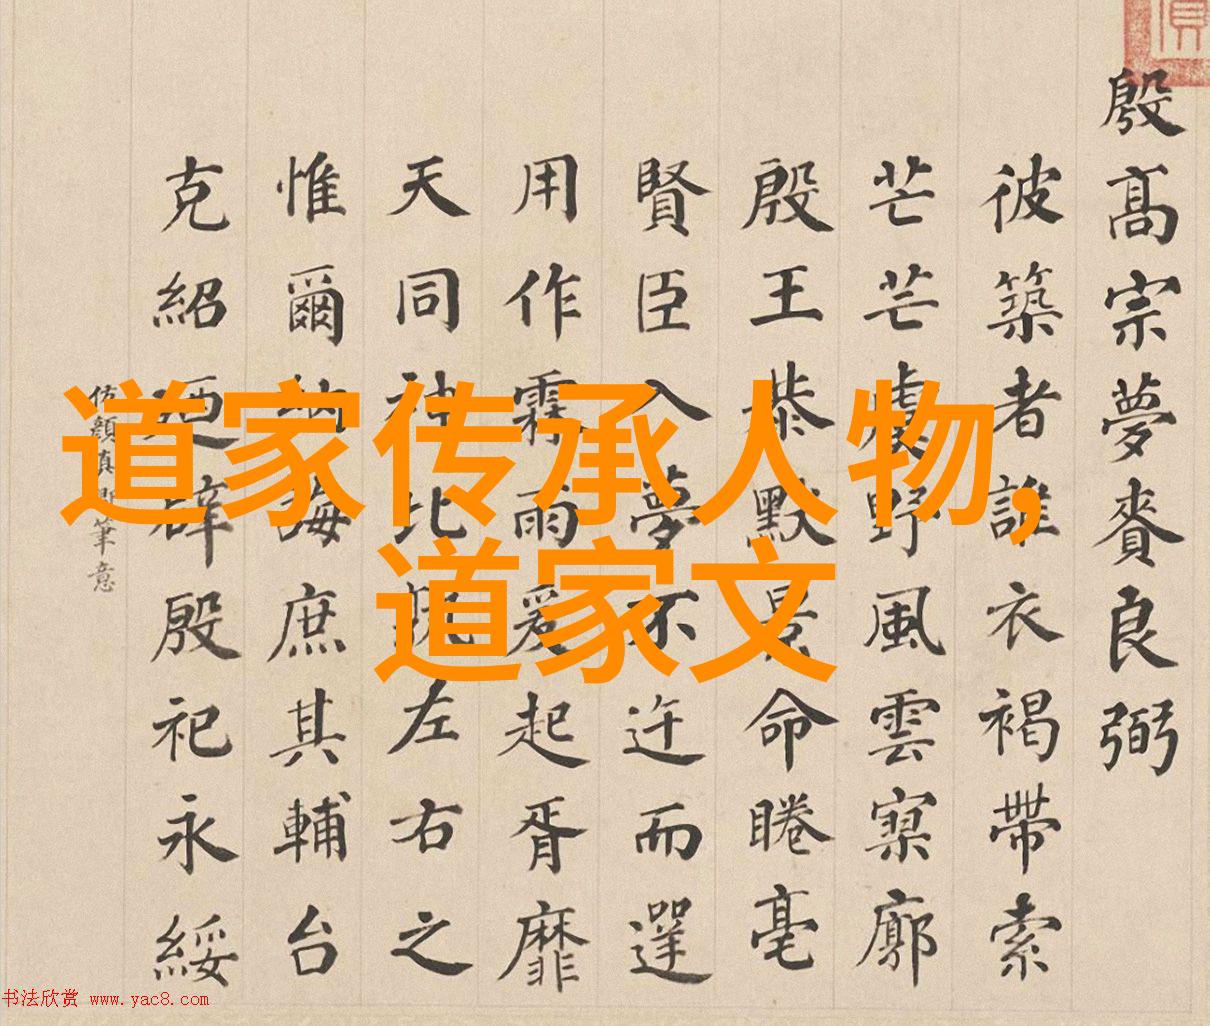 道家传承人物，
道家文
殷髙宗夢賚良弼
彼築者誰衣褐帶索
芒芒虞野風雲寥廓
殷王恭默景命睠亳
賢臣入夢不迕而遻
用作霖雨爰起胥靡
天同神比左右之
惟爾納誨庶其輔台
克紹廼辟殷祀永綏
仿顏真卿筆意
书法欣赏 www.yac8.com